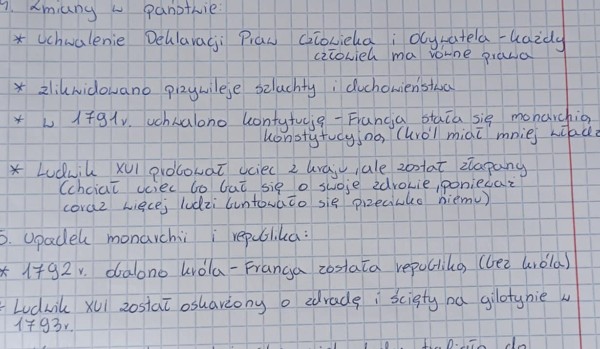 4. Zmiany w państwie:
* uchwalenie Deklaracji Praw Człowieka i Obywatela - każdy
człowiek ma równe prawa
* zlikwidowano przywileje szlachty i duchowieństwa
* w 1791r. uchwalono kontytucję - Francja stała się monarchią
konstytucyjną, (król miał mniej władz
* Ludwik XVI próbował uciec z kraju, ale został złapany
(chciał uciec bo bał się o swoje zdrowie, ponieważ
coraz więcej ludzi buntowało się przeciwko niemu)
5. Upadek monarchii i republika:
* 1792 r. obalono króla - Francja została republiką (bez króla)
- Ludwik XVI został oskarżony o zdradę i ścięty na gilotynie w
1793r.